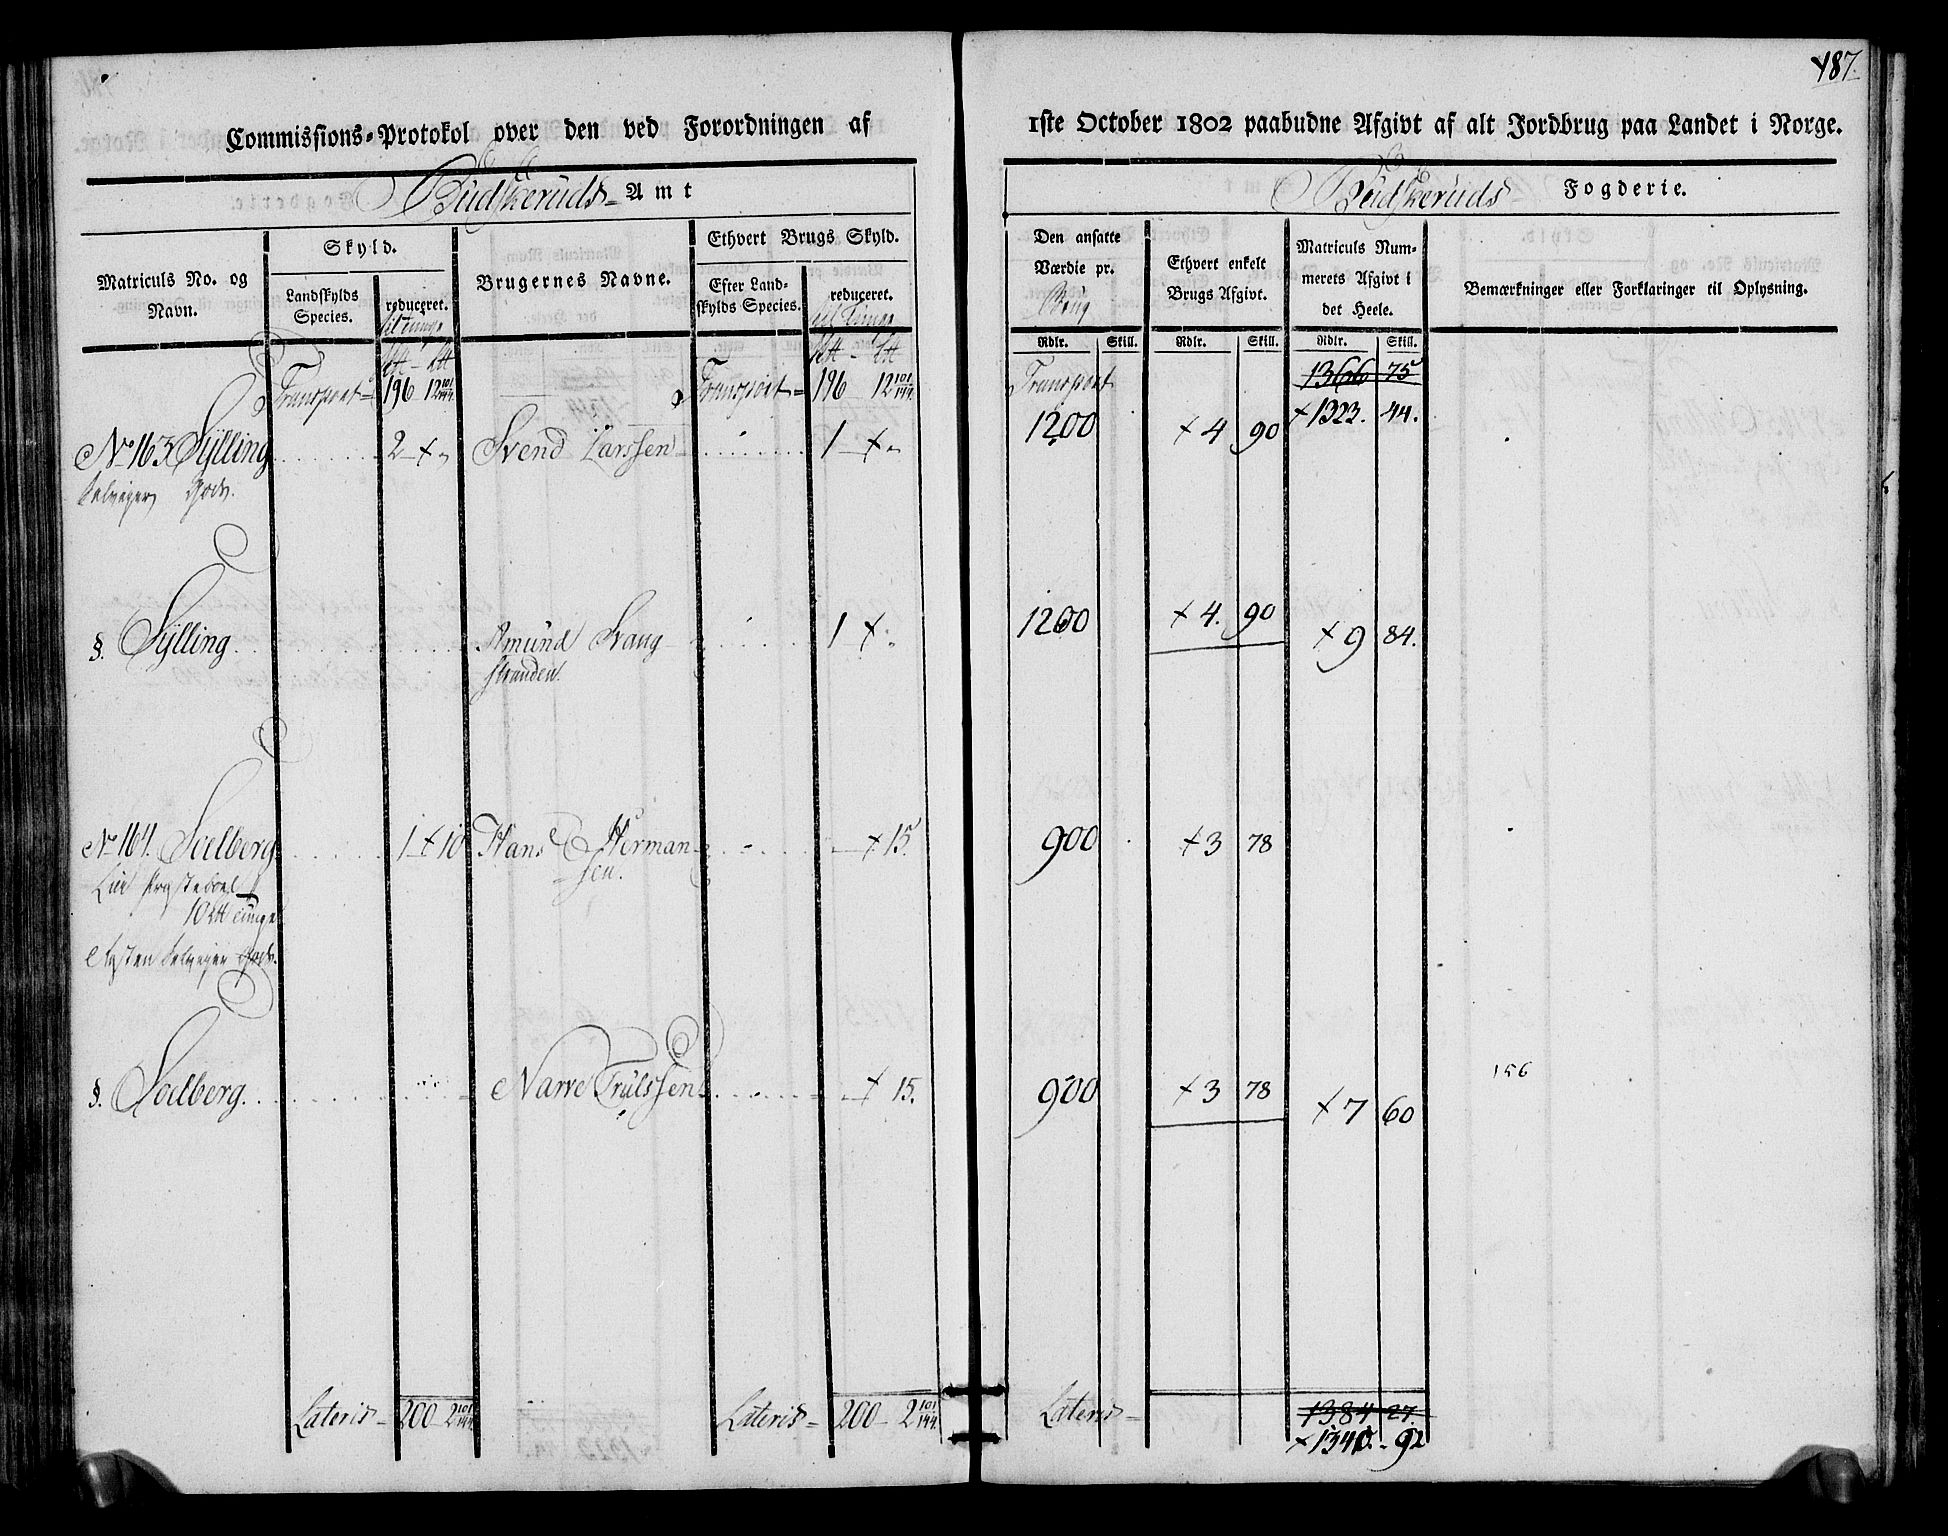 187.
Commissions-Protokol over den ved Forordningen af 1ste October 1802 paabudne Afgivt af alt Jordbrug paa Landet i Norge.
Budskeruds Amt
Budskeruds Fogderie.
Matriculs No. og Navn.
Skyld.
Landskylds Species.
reduceret.
til tunge
Brugernes Navne.
Ethvert Brugs Skyld.
Efter Landskylds Species.
reduceret.
til Tunge
Den ansatte Værdie pr.
Brug
Rdlr. Skill.
Ethvert enkelt Brugs Afgivt.
Rdlr. Skill.
Matriculs Nummerets Afgivt i det Heele.
Rdlr. Skill.
Bemærkninger eller Forklaringer til Oplysning.
Transport 196 12 101/144 Transport 196 12 101/144 Transport 1366 75
× 1323. 44.
No 163 Sylling 2 × „ Svend Larssen 1 × „ 1200 × 4 90
Selveyer Gods.
§. Sylling Amund Svang 1 × „ 1200 × 4. 90 × 9 84.
stranden
No 164. Solberg 1 × 10 Hans Herman × 15. 900 × 3 78
sen.
Lier Præsteboel
10 ltt tunge
Resten Selveyer Gods.
§. Solberg Narve Trulssen × 15. 900 × 3 78 × 7 60
156
Lateris 200 2 101/144 Lateris 200 2 101/144 Lateris 1384 27.
× 1340. 92